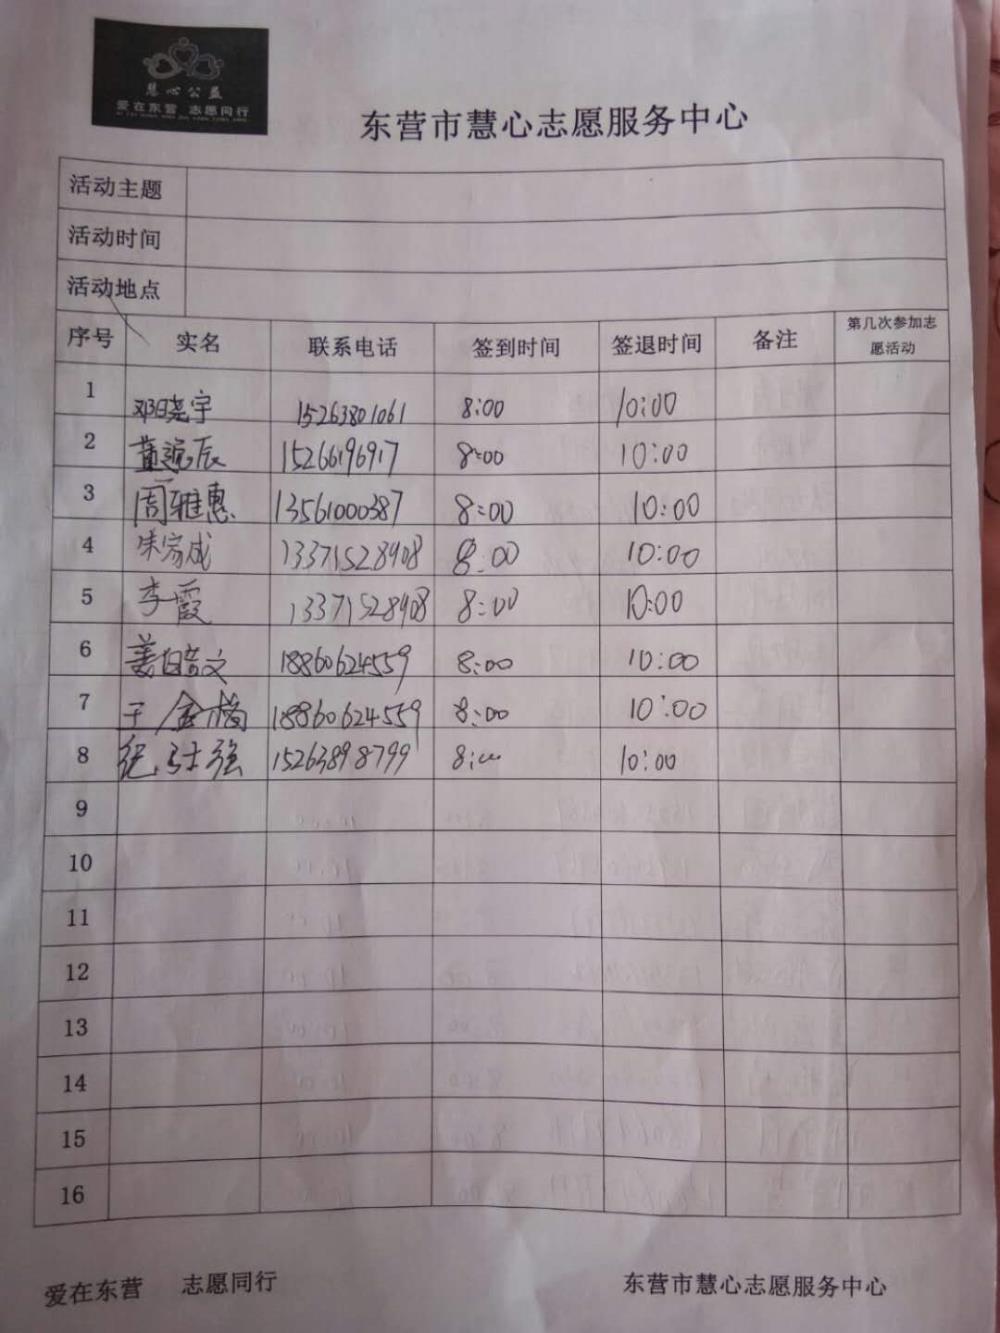 慧心公益
爱在东营 志愿同行
东营市慧心志愿服务中心
活动主题
活动时间
活动地点
序号 实名 联系电话 签到时间 签退时间 备注 第几次参加志愿活动
1 邓晓宇 15263801061 8:00 10:00
2 董宸辰 15266196917 8:00 10:00
3 周雅惠 13561000387 8:00 10:00
4 朱家成 13371528908 8:00 10:00
5 李霞 13371528908 8:00 10:00
6 姜皓文 18860624559 8:00 10:00
7 王金梅 18860624559 8:00 10:00
8 纪 强 15263898799 8:00 10:00
9
10
11
12
13
14
15
16
爱在东营 志愿同行 东营市慧心志愿服务中心